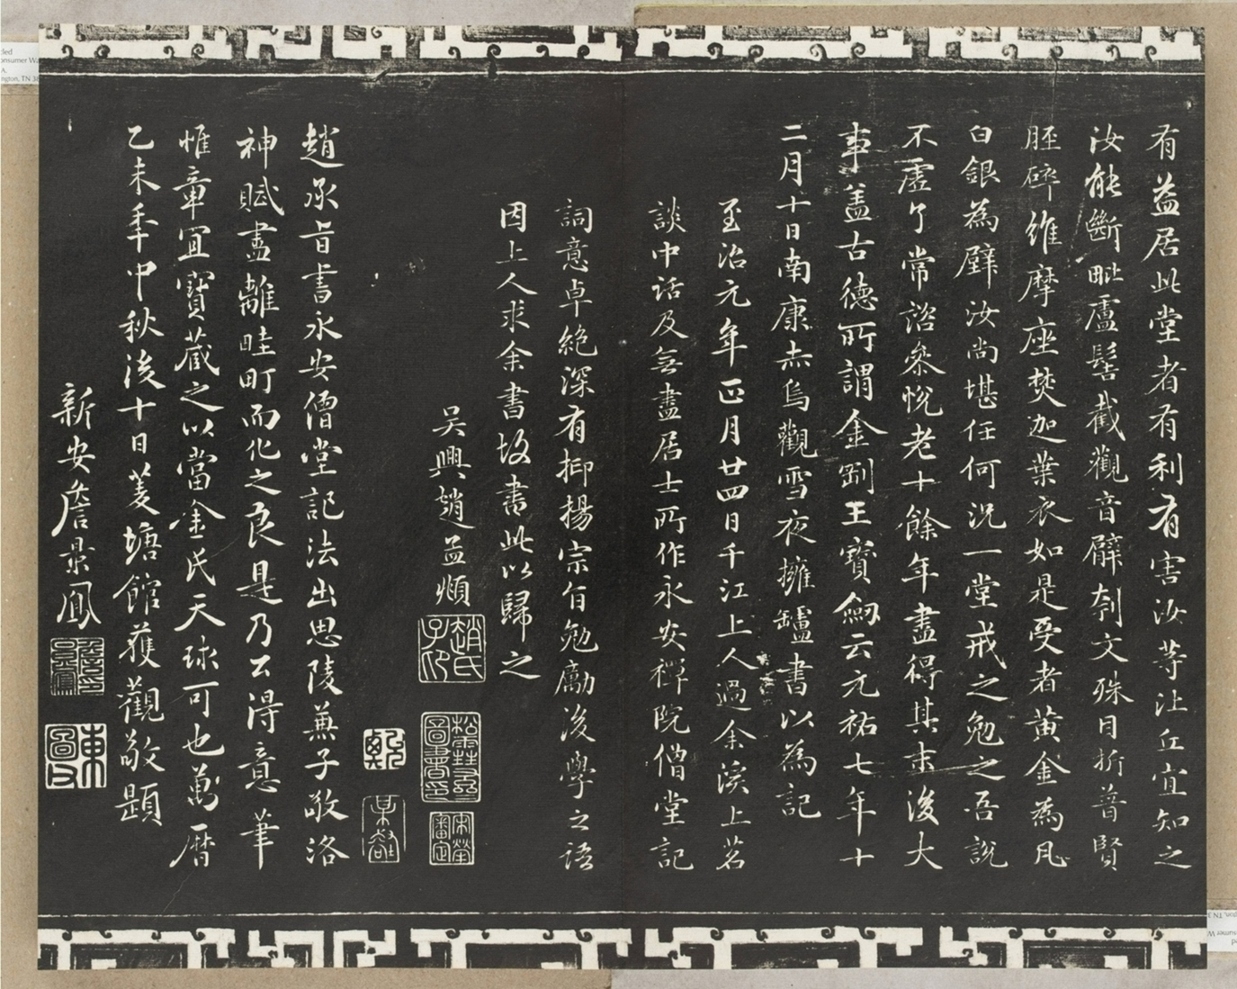 有益居此堂者有利有害汝等比丘宜知之
汝能斷毗盧髻截觀音臂刳文殊目折普賢
脛碎維摩座焚迦葉衣如是受者黃金為瓦
白銀為壁汝尚堪任何況一堂戒之勉之吾說
不虛了常諮參悅老十餘年盡得其末後大
事蓋古德所謂金剛王寶劒云元祐七年十
二月十日南康赤烏觀雪夜擁罏書以為記
至治元年正月廿四日千江上人過余溪上茗
談中話及無盡居士所作永安禪院僧堂記
詞意卓絕深有抑揚宗旨勉勵後學之語
因上人求余書故書此以歸之
吳興趙孟頫
趙氏子印
松雪齋圖書印
趙承旨書永安僧堂記法出思陵兼子敬洛
神賦盡離畦町而化之良是乃公得意筆
惟章宜寶藏之以當金氏天球可也萬曆
乙未年中秋後十日菱塘館獲觀敬題
新安詹景鳳
東圖父